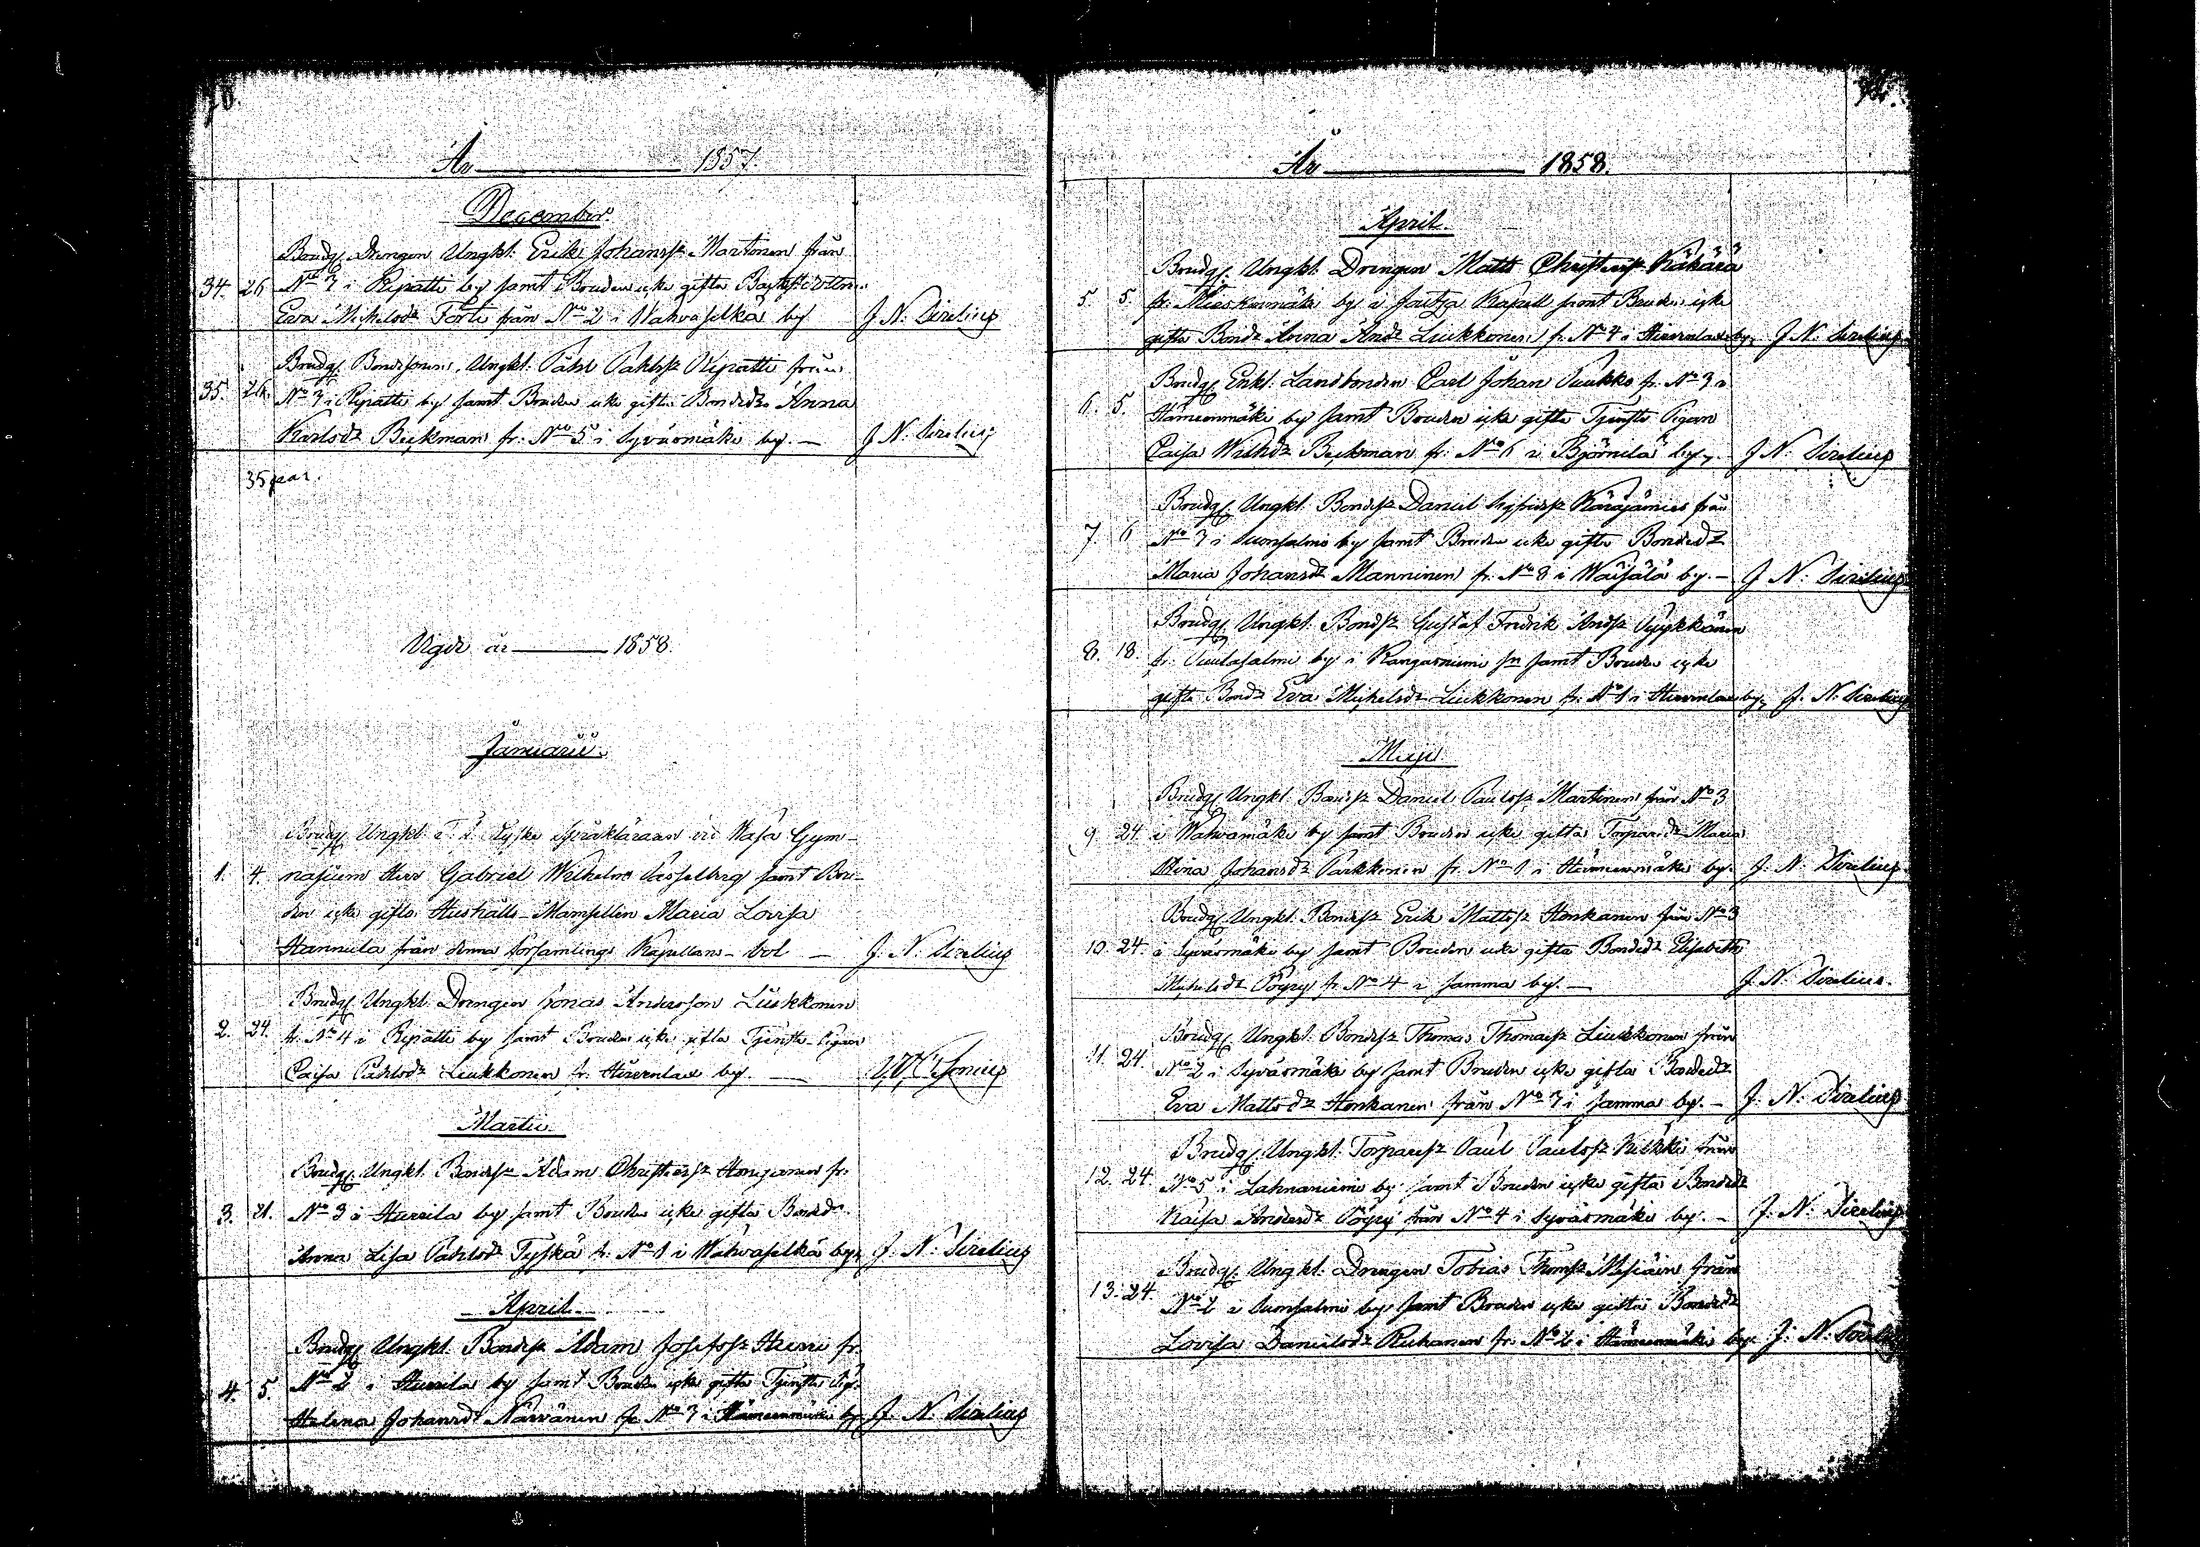 År 1857.
December.
34. 26 Brudg. Drengen Ungkl. Erik Johansſz Martonen från
No 7 i Ripatti by samt Bruden icke gifta
Eva Michelsdr från No 2 i Wahvaselkä by J. N. Sirelius
35. 26. Brudg. Bondesonen, Ungkl. Påhl Påhlsſz Ripatti från
No 3 i Ripatti by samt Bruden icke gifta Bondedr Anna
Karlsdr Beckman fr. No 5 i Syvärmäki by. — J. N. Sirelius
35 par.
Vigde år 1858.
Januarii.
Brudg. Ungkl. T. f. Tyske språkläraren vid Wasa Gym-
1. 4. nasium Herr Gabriel Wilhelm samt Bru-
den icke gifta Hushålls-Mamsellen Maria Lovisa
Hannula från denna församlings Kapellans-bol — J. N. Sirelius
Brudg. Ungkl. Drengen Jonas Andersson Liukkonen
2. 24. fr. No 4 i Ripatti by samt Bruden icke gifta Tjenste-Pigan
Caisa Påhlsdr Liukkonen fr. Hirvenlax by. —
Martii.
Brudg. Ungkl. Bondesſz Adam Christersſz fr.
3. 21. No 3 i Hurrila by samt Bruden icke gifta Bondedr
Anna Lisa Påhlsdr Tyskä fr. No 1 i Wahvaselkä by. J. N. Sirelius
April.
Brudg. Ungkl. Bondesſz Adam Josefsſz Hurri fr.
4. 5. No 2 i Hurrila by samt Bruden icke gifta Tjenste Pig.
Helena Johansdr Närvänen fr. No 3 i Hämeenmäki by J. N. Sirelius
År 1858.
April.
Brudg. Ungkl. Drengen Matts Christersſz Käkärä
5. 5. fr. by i Jorkja Kapell samt Bruden icke
gifta Bondr Anna Andr Liukkonen fr. No 4 i Hirvenlax by. J. N. Sirelius
Brudg. Enkl. Landbonden Carl Johan Puukko fr. No 3 i
6. 5. Hämeenmäki by samt Bruden icke gifta Tjenste Pigan
Caisa Wilhdr Beckman fr. No 6 i Björnilä by. J. N. Sirelius
Brudg. Ungkl. Bondesſz Daniel Sigfridsſz Käräjämies från
7. 6 No 7 i Sumsalmi by samt Bruden icke gifta Bondedr
Maria Johansdr Manninen fr. No 8 i Wäisälä by. — J. N. Sirelius
Brudg. Ungkl. Bondsſz Gustaf Fredrik Andsſz Pyykkänen
8. 18. fr. by i Kangasniemi sn samt Bruden icke
gifta Bondr Eva Michelsdr Liukkonen fr. No 1 i Hirvenlax by. J. N. Sirelius
Maji.
Brudg. Ungkl. Bondesſz Daniel Paulsſz Martinen från No 3
9. 24. i Wahvamäki by samt Bruden icke gifta Torparedr Maria
Stina Johansdr Parkkonen fr. No 1 i Hämeenmäki by. J. N. Sirelius
Brudg. Ungkl. Bondesſz Erik Mattsſz Honkanen från No 3
10. 24. i Syvärmäki by samt Bruden icke gifta Bondedr Elisabeth
Michelsdr Pöyry fr No 4 i samma by. — J. N. Sirelius.
Brudg. Ungkl. Bondesſz Thomas Thomasſz Liukkonen från
11. 24. No 2 i Syvärmäki by samt Bruden icke gifta Bondedr
Eva Mattsdr Honkanen från No 7 i samma by. — J. N. Sirelius
Brudg. Ungkl. Torparesſz Paul Paulsſz från
12. 24. No 5 i Lahnaniemi by samt Bruden icke gifta Bondedr
Kaisa Andersdr Pöyry från No 4 i Syvärmäki by. — J. N. Sirelius
Brudg. Ungkl. Drengen Tobias Thomsſz från
13. 24. No 2 i Sumsalmi by samt Bruden icke gifta Bondedr
Lovisa Danielsdr fr. No 2 i Hämeenmäki by. J. N. Sirelius